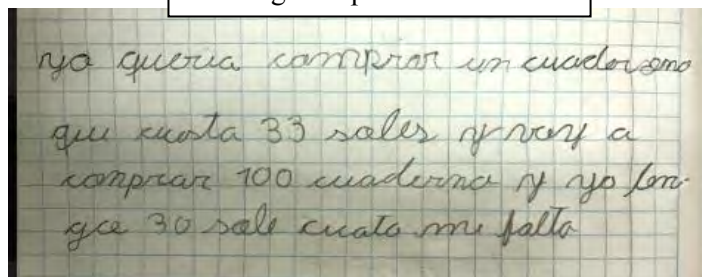 yo queria comprar un cuaderono
que cuesta 33 soles y voy a
comprar 100 cuaderno y yo ten-
go 30 sole cuato me falta